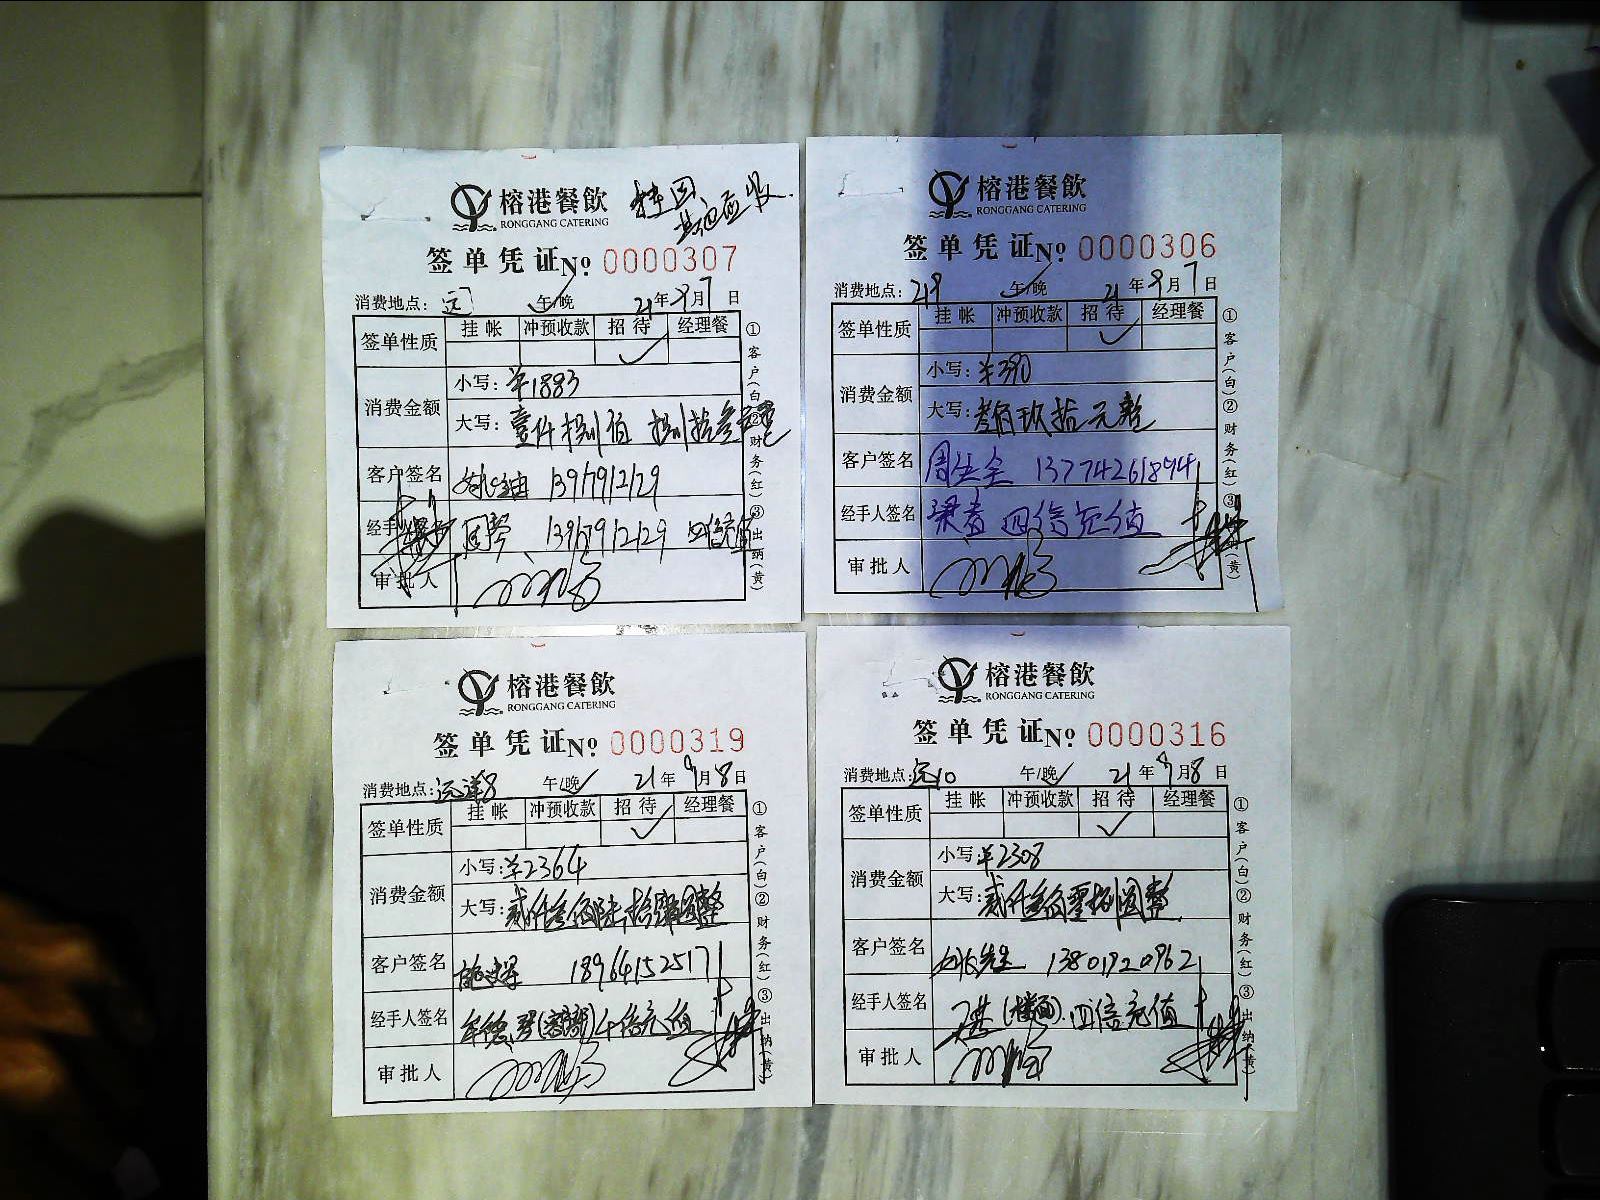 榕港餐飲
RONGGANG CATERING
签单凭证№ 0000307
消费地点: 远 午/晚 21年9月7日
签单性质 挂帐 冲预收款 招待 经理餐
消费金额
小写: ¥1883
大写: 壹仟捌佰捌拾叁
客户签名 13917912129
经手 13917912129 四倍充值
审批人
①客户(白)②财务(红)③出纳(黄)
榕港餐飲
RONGGANG CATERING
签单凭证№ 0000306
消费地点: 219 午/晚 21年9月7日
签单性质 挂帐 冲预收款 招待 经理餐
消费金额
小写: ¥390
大写: 叁佰玖拾元整
客户签名 周先生 13774261894
经手人签名 四倍充值
审批人
①客户(白)②财务(红)③出纳(黄)
榕港餐飲
RONGGANG CATERING
签单凭证№ 0000319
消费地点: 远洋8 午/晚 21年9月8日
签单性质 挂帐 冲预收款 招待 经理餐
消费金额
小写: ¥2364
大写: 贰仟叁佰陆拾肆圆整
客户签名 18964152517
经手人签名 十倍充值
审批人
①客户(白)②财务(红)③出纳(黄)
榕港餐飲
RONGGANG CATERING
签单凭证№ 0000316
消费地点: 远10 午/晚 21年9月8日
签单性质 挂帐 冲预收款 招待 经理餐
消费金额
小写: ¥2308
大写: 贰仟叁佰零捌圆整
客户签名 姚先生 13801920962
经手人签名 (楼面) 四倍充值
审批人
①客户(白)②财务(红)③出纳(黄)